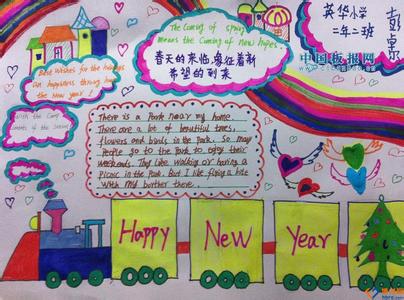 The Coming of spring
means the Coming of new hopes.
春天的来临,象征着新
希望的到来
英华小学
二年二班
中国板报网
Best Wishes for the holidays
an happiness throug hout
the New year!
With the Comp
iments of the Season
There is a Park near my home.
There are a lot of beautiful trees,
flowers and birds in the Park. So may
People go to the Park to enjoy their
weekends. They like walking or having a
Picnic in the Park. But I like flying a kite
with my burther there.
Happy
New
Year